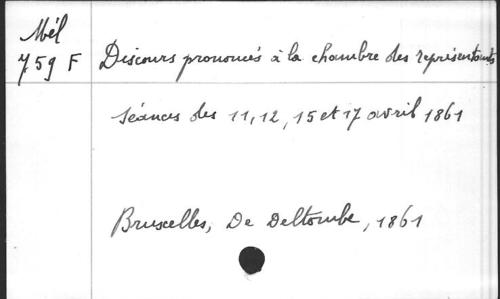 Mél
759 F
Discours prononcés à la chambre des représentants
séances des 11, 12, 15 et 17 avril 1861
Bruxelles, De Deltombe, 1861